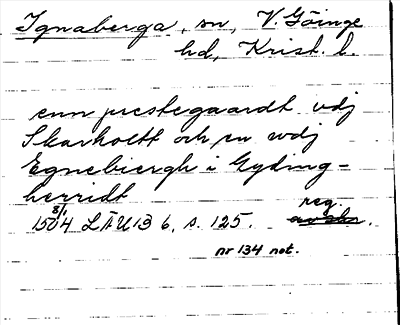 Ignaberga, sn, V. Göinge
hd, Krist. l.
enn prestegaardt vdj
Skarholtt och en wdj
Egnebiergh i Gyding-
herridt
8/1
1504 LÄU13 6, s. 125. reg.
nr 134 not.